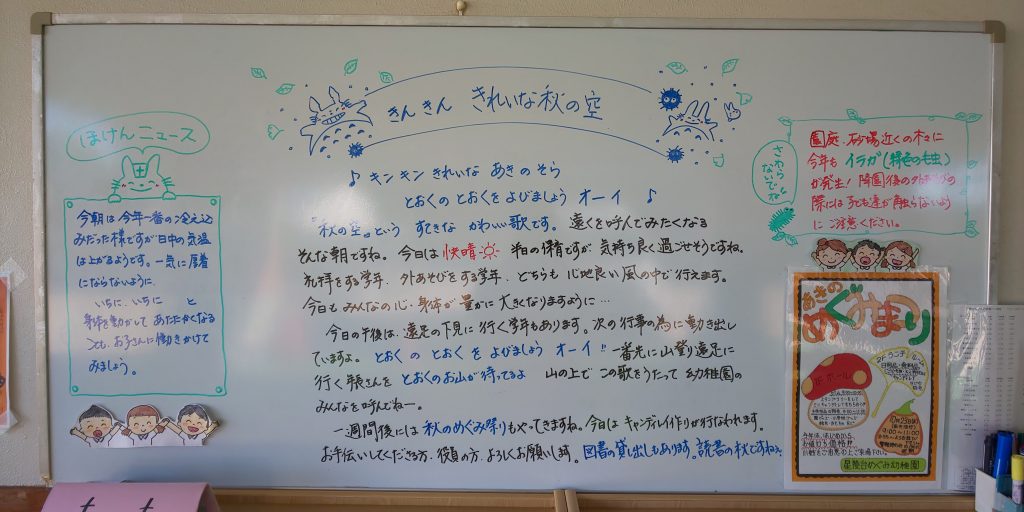 きんきん きれいな秋の空
♪ キンキン きれいな あきの そら
とおくの とおくを よびましょう オーイ ♪
『秋の空』という すてきな かわいい歌です。遠くを呼んでみたくなる
そんな朝ですね。今日は 快晴 半日の保育ですが、気持ち良く過ごせそうですね。
礼拝をする学年、外あそびをする学年、どちらも 心地良い 風の中で 行えます。
今日も みんなの心・身体が 豊かに 大きくなりますように…
今日の午後は、遠足の下見に 行く学年もあります。次の行事の為に動き出し
ていますよ。とおく の とおく を よびましょう オーイ!! 一番先に山登り遠足に
行く年長さんを とおくのお山が待ってるよ 山の上で この歌をうたって 幼稚園の
みんなを呼んでねー。
一週間後には 秋のめぐみ祭りもやってきますね。今日は キャンディレイ作りが行なわれます。
お手伝いしてくださる方、役員の方、よろしくお願いします。図書の貸し出しもあります。読書の秋ですね
ほけんニュース
今朝は今年一番の冷え込
みだった様ですが日中の気温
は上がるようです。一気に厚着
にならないように、
いちに、いちに と
身体を動かして あたたかくなる
ことも、お子さんに働きかけて
みましょう。
さわら
ないでね
園庭、砂場近くの木々に
今年も イラガ(緑色の毛虫)
が発生! 降園後の外あそびの
際には 子ども達が触らないよう
に ご注意ください。
あきの
めぐみまつり
2Fホール
2Fランチルーム
10月23日
9:00〜11:00
星陵台めぐみ幼稚園